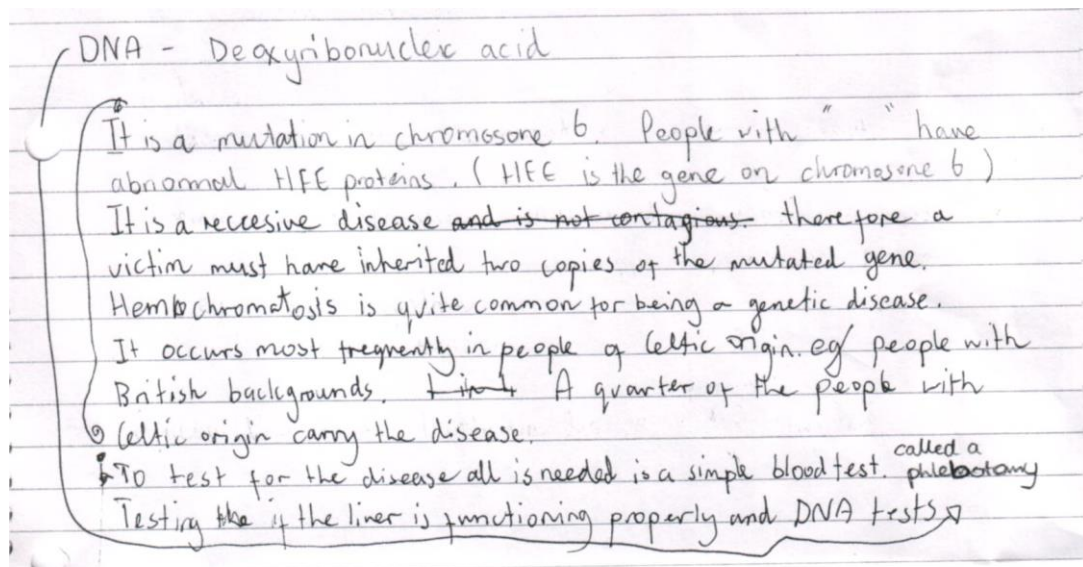 DNA - Deoxyribonucleic acid
It is a mutation in chromosone 6. People with " " have
abnormal HFE proteins. (HFE is the gene on chromosone 6)
It is a reccesive disease and is not contagious. therefore a
victim must have inherited two copies of the mutated gene.
Hemochromatosis is quite common for being a genetic disease.
It occurs most frequently in people of Celtic origin. eg people with
British backgrounds. A quarter of the people with
Celtic origin carry the disease.
To test for the disease all is needed is a simple blood test. called a phlebotomy
Testing if the liver is functioning properly and DNA tests